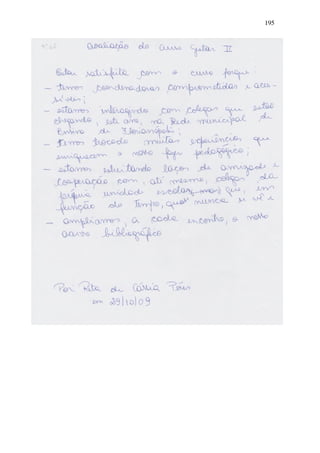 195
Avaliação do curso Gestar II
Estou satisfeita com o curso porque:
- temos coordenadoras comprometidas e aces-
síveis;
- estamos interagindo com colegas que estão
chegando, este ano, na Rede Municipal de
Ensino de Florianópolis;
- temos trocado muitas experiências que
enriquecem o nosso fazer pedagógico;
- estamos estreitando laços de amizade e
cooperação com, até mesmo, colegas da
própria unidade escolar, que, em
função do tempo, quase nunca se vê e
- ampliamos, a cada encontro, o nosso
acervo bibliográfico.
Por Rita de Cássia
em 29/10/09